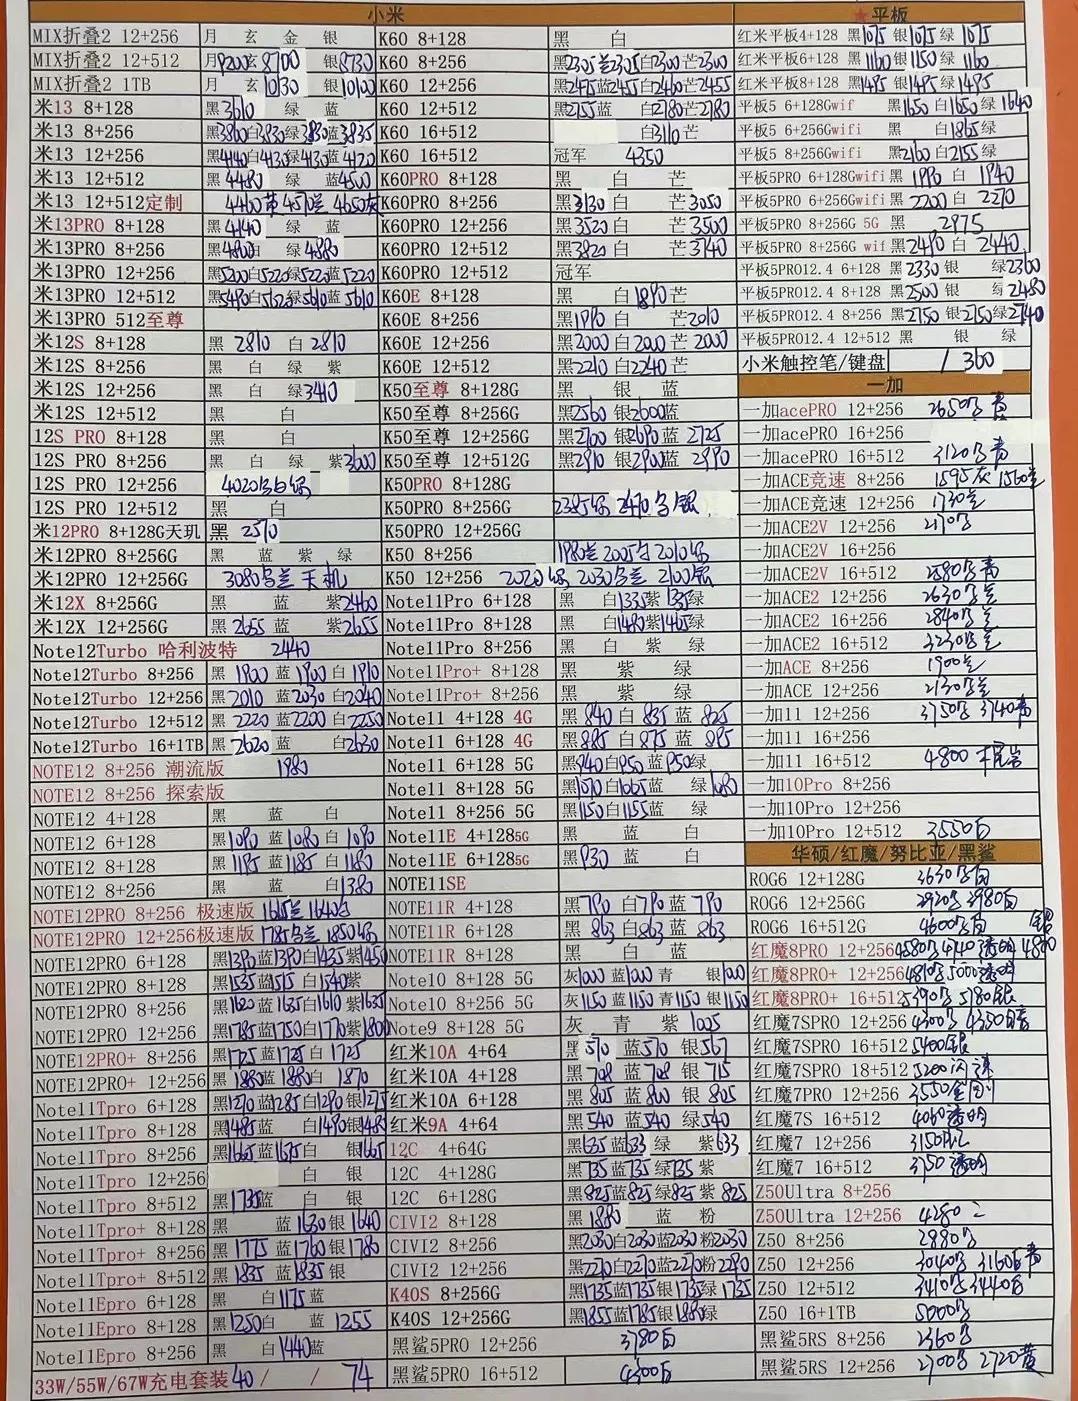 小米
MIX折叠2 12+256 月 玄 金 银
MIX折叠2 12+512 月9200玄8700 银8730
MIX折叠2 1TB 月 玄10130 银10100
米13 8+128 黑3610 绿 蓝
米13 8+256 黑3860白3830绿3830蓝3835
米13 12+256 黑4140白4130绿4130蓝4120
米13 12+512 黑4480 绿 蓝4500
米13 12+512定制
米13PRO 8+128 黑4140 绿 蓝
米13PRO 8+256 黑4800白 绿4880
米13PRO 12+256 黑5200白5220绿5220蓝5220
米13PRO 12+512 黑5490白5620绿5610蓝5610
米13PRO 512至尊
米12S 8+128 黑 2810 白 2810
米12S 8+256 黑 白 绿 紫
米12S 12+256 黑 白 绿3410
米12S 12+512 黑 白
12S PRO 8+128 黑 白
12S PRO 8+256 黑 白 绿 紫3600
12S PRO 12+256 4020
12S PRO 12+512 黑 白
米12PRO 8+128G天玑 黑 2510
米12PRO 8+256G 黑 蓝 紫 绿
米12PRO 12+256G 3080
米12X 8+256G 黑 蓝 紫2460
米12X 12+256G 黑 2655 蓝 紫2655
Note12Turbo 哈利波特 2440
Note12Turbo 8+256 黑 1900 蓝 1900 白 1910
Note12Turbo 12+256 黑 2010 蓝2030 白2040
Note12Turbo 12+512 黑 2220 蓝2200 白2250
Note12Turbo 16+1TB 黑 2620 蓝 白2630
NOTE12 8+256 潮流版 1980
NOTE12 8+256 探索版
NOTE12 4+128 黑 蓝 白
NOTE12 6+128 黑1090 蓝1080 白 1090
NOTE12 8+128 黑1195 蓝1185 白1180
NOTE12 8+256 黑 蓝 白1380
NOTE12PRO 8+256 极速版 1615兰 1640白
NOTE12PRO 12+256极速版 1785 1850
NOTE12PRO 6+128 黑1390蓝1390白1435紫1450
NOTE12PRO 8+128 黑1535蓝1515白1540紫
NOTE12PRO 8+256 黑1620蓝1635白1610紫1635
NOTE12PRO 12+256 黑1785蓝1750白1770紫1800
NOTE12PRO+ 8+256 黑1725蓝1725白 1725
NOTE12PRO+ 12+256 黑1880蓝1880白 1870
Note11Tpro 6+128 黑1270蓝1285白1290银1275
Note11Tpro 8+128 黑1485蓝 白1490银1480
Note11Tpro 8+256 黑1665蓝1675白 银1665
Note11Tpro 12+256 白 银
Note11Tpro 8+512 黑1735蓝 白 银
Note11Tpro+ 8+128 黑 蓝1630银1640
Note11Tpro+ 8+256 黑1775蓝1760银1780
Note11Tpro+ 8+512 黑1835 蓝1835银
Note11Epro 6+128 黑 白1175蓝
Note11Epro 8+128 黑1250白 蓝 1255
Note11Epro 8+256 黑 白1440蓝
33W/55W/67W充电套装 40 / / 74
K60 8+128 黑 白
K60 8+256 黑2305兰2305白2300芒2300
K60 12+256 黑2475蓝2455白2460芒2455
K60 12+512 黑2755蓝 白2780芒2780
K60 16+512 白3110芒
K60 16+512 冠军 4350
K60PRO 8+128 黑 白 芒
K60PRO 8+256 黑3130 白 芒3050
K60PRO 12+256 黑3520 白 芒3500
K60PRO 12+512 黑3820 白 芒3740
K60PRO 12+512 冠军
K60E 8+128 黑 白1890芒
K60E 8+256 黑1990 白 芒2010
K60E 12+256 黑2000白2000芒2000
K60E 12+512 黑2210白2240芒
K50至尊 8+128G 黑 银 蓝
K50至尊 8+256G 黑2560 银2600蓝
K50至尊 12+256G 黑2700 银2690蓝 2725
K50至尊 12+512G 黑2910 银2900蓝 2990
K50PRO 8+128G
K50PRO 8+256G 2385 2470
K50PRO 12+256G
K50 8+256 1980兰 2005白 2010
K50 12+256 2020 2030 2100
Note11Pro 6+128 黑 白1335紫1335绿
Note11Pro 8+128 黑 白1480紫1465绿
Note11Pro 8+256 黑 白 紫 绿
Note11Pro+ 8+128 黑 紫 绿
Note11Pro+ 8+256 黑 紫 绿
Note11 4+128 4G 黑 840白 835 蓝 825
Note11 6+128 4G 黑 885 白 875 蓝 885
Note11 6+128 5G 黑940白950蓝950绿
Note11 8+128 5G 黑1070白1065蓝 绿1080
Note11 8+256 5G 黑1150白1155蓝 绿
Note11E 4+128 5G 黑 蓝 白
Note11E 6+128 5G 黑930 蓝 白
NOTE11SE
NOTE11R 4+128 黑790 白790蓝 790
NOTE11R 6+128 黑 863白863蓝 863
NOTE11R 8+128 黑 白 蓝
Note10 8+128 5G 灰1000蓝1000青 银1000
Note10 8+256 5G 灰1150蓝1150青1150银1150
Note9 8+128 5G 灰 青 紫 1005
红米10A 4+64 黑 510 蓝510 银507
红米10A 4+128 黑 708 蓝 708 银 715
红米10A 6+128 黑 805 蓝 800 银 805
红米9A 4+64 黑540 蓝540 绿540
12C 4+64G 黑635蓝633绿 紫633
12C 4+128G 黑735蓝735绿735紫
12C 6+128G 黑825蓝825绿825紫825
CIVI2 8+128 黑1880 蓝 粉
CIVI2 8+256 黑2030白2030蓝2030粉2030
CIVI2 12+256 黑2210白2210蓝2210粉2290
K40S 8+256G 黑1735蓝1735银1735绿1735
K40S 12+256G 黑1855蓝1785银1880绿
黑鲨5PRO 12+256 3780白
黑鲨5PRO 16+512 4300白
★平板
红米平板4+128 黑1075 银1075绿 1075
红米平板6+128 黑1160银1150绿 1160
红米平板8+128 黑1495银1495绿1495
平板5 6+128Gwifi 黑1650白1650绿 1640
平板5 6+256Gwifi 黑 白1865绿
平板5 8+256Gwifi 黑2160白2155绿
平板5PRO 6+128Gwifi 黑 1990 白 1940
平板5PRO 6+256Gwifi 黑 2200 白 2270
平板5PRO 8+256G 5G 黑 2975
平板5PRO 8+256G wifi 黑2490 白 2440
平板5PRO12.4 6+128 黑2330银 绿2360
平板5PRO12.4 8+128 黑2500银 绿2480
平板5PRO12.4 8+256 黑2750银2750绿2740
平板5PRO12.4 12+512 黑 银 绿
小米触控笔/键盘 / 360
一加
一加acePRO 12+256 2650
一加acePRO 16+256
一加acePRO 16+512 3120
一加ACE竞速 8+256 1595灰 1560兰
一加ACE竞速 12+256 1730兰
一加ACE2V 12+256 2170
一加ACE2V 16+256
一加ACE2V 16+512 2580
一加ACE2 12+256 2630
一加ACE2 16+256 2840
一加ACE2 16+512 3230
一加ACE 8+256 1900兰
一加ACE 12+256 2130
一加11 12+256 3750 3740
一加11 16+256
一加11 16+512 4800
一加10Pro 8+256
一加10Pro 12+256
一加10Pro 12+512 3550白
华硕/红魔/努比亚/黑鲨
ROG6 12+128G 3630
ROG6 12+256G 3920 3980白
ROG6 16+512G 4600
红魔8PRO 12+256
红魔8PRO+ 12+256
红魔8PRO+ 16+512
红魔7SPRO 12+256 4300 4350
红魔7SPRO 16+512 5400
红魔7SPRO 18+512 5200
红魔7PRO 12+256 3550
红魔7S 16+512 4060透明
红魔7 12+256 3150
红魔7 16+512 3750透明
Z50Ultra 8+256
Z50Ultra 12+256 4280
Z50 8+256 2880
Z50 12+256 3040 3160
Z50 12+512 3410 3440白
Z50 16+1TB 5000
黑鲨5RS 8+256 2360
黑鲨5RS 12+256 2700 2720黄